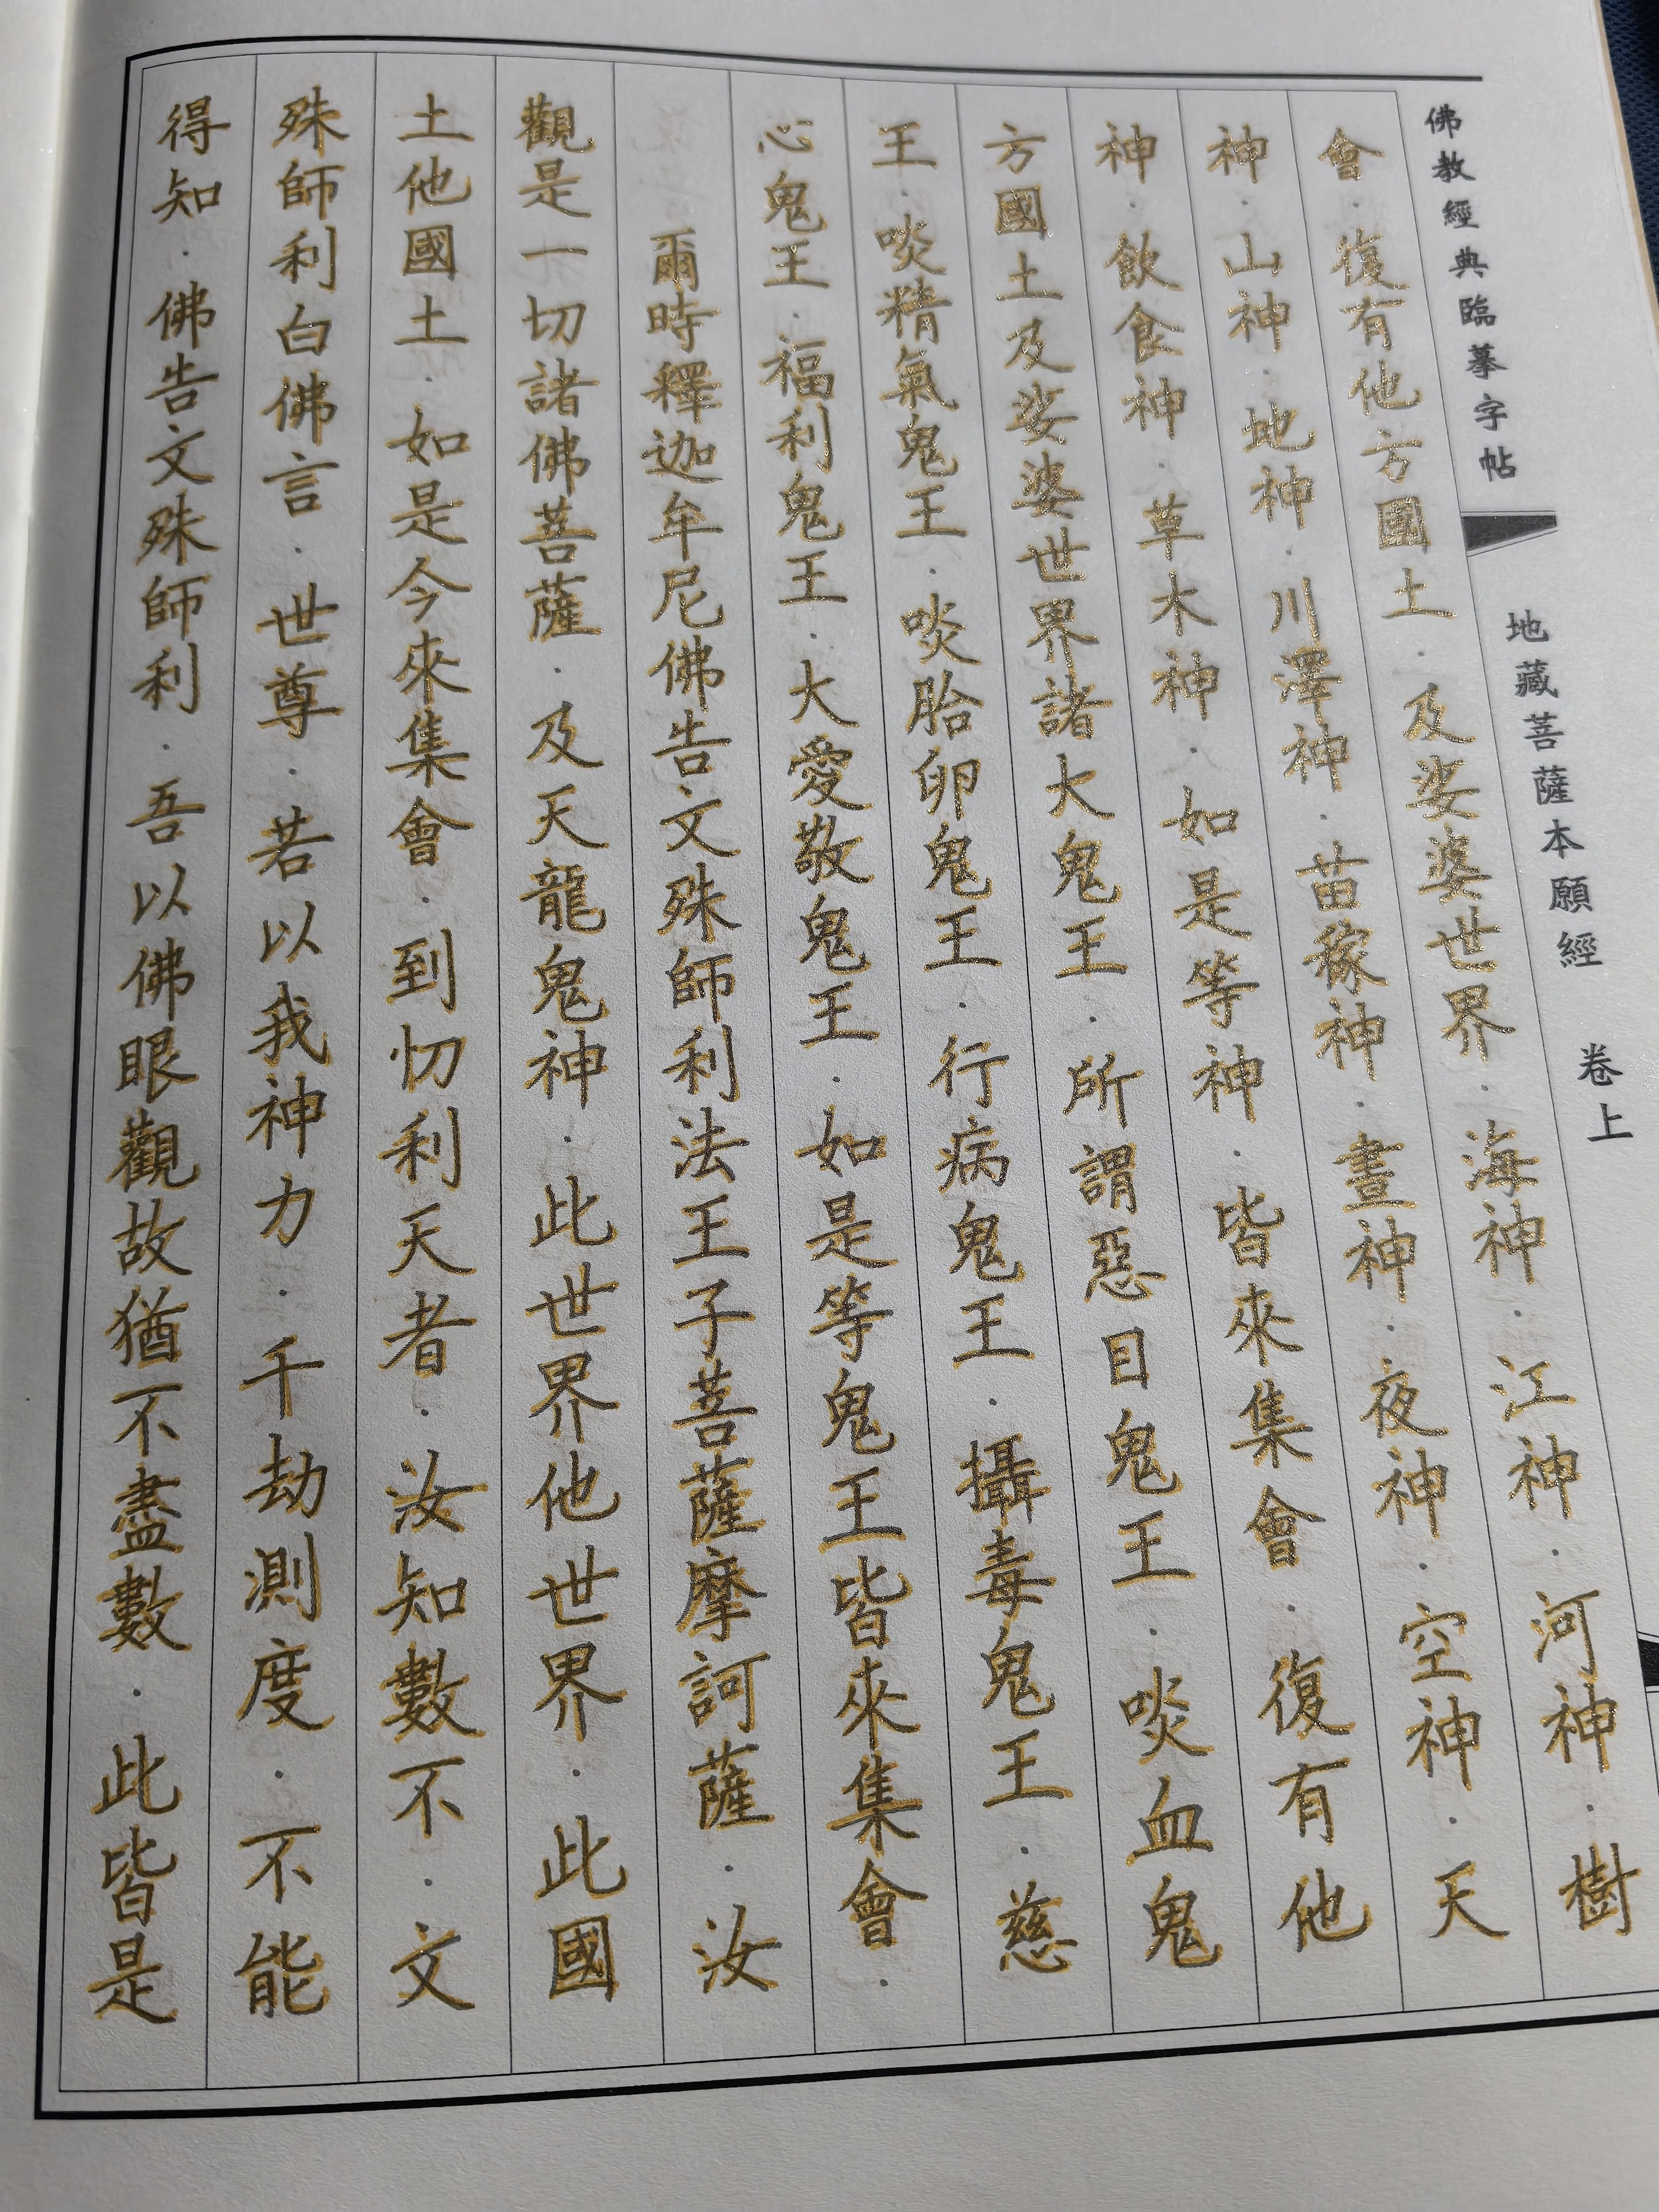 佛教經典臨摹字帖 地藏菩薩本願經 卷上
會．復有他方國土．及娑婆世界．海神．江神．河神．樹
神．山神．地神．川澤神．苗稼神．晝神．夜神．空神．天
神．飲食神．草木神．如是等神．皆來集會．復有他
方國土及娑婆世界諸大鬼王．所謂惡目鬼王．啖血鬼
王．啖精氣鬼王．啖胎卵鬼王．行病鬼王．攝毒鬼王．慈
心鬼王．福利鬼王．大愛敬鬼王．如是等鬼王皆來集會．
爾時釋迦牟尼佛告文殊師利法王子菩薩摩訶薩．汝
觀是一切諸佛菩薩．及天龍鬼神．此世界他世界．此國
土他國土．如是今來集會．到忉利天者．汝知數不．文
殊師利白佛言．世尊．若以我神力．千劫測度．不能
得知．佛告文殊師利．吾以佛眼觀故猶不盡數．此皆是